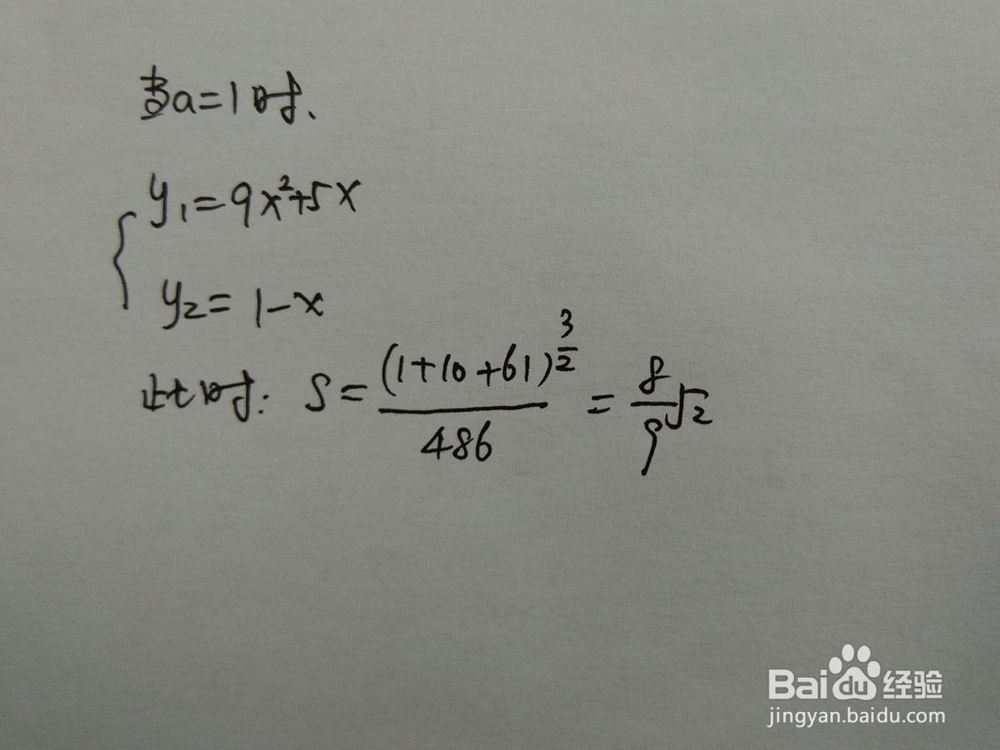 当a=1时.
y₁=9x²+5x
y₂=1-x
此时: S=(1+10+61)^(3/2)/486=8/9√2
Baidu经验
jingyan.baidu.com